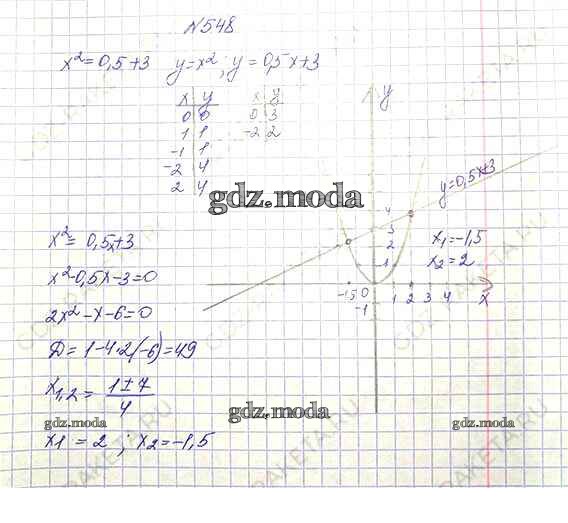 N548
x²=0,5+3 y=x²; y=0,5x+3
x y x y
0 0 0 3
1 1 -2 2
-1 1
-2 4
2 4
gdz.moda
y
y=0,5x+3
4
3
2
1
x₁=-1,5
x₂=2
-1,5 0 1 2 3 4 x
-1
x²=0,5x+3
x²-0,5x-3=0
2x²-x-6=0
D=1-4·2(-6)=49
x₁,₂= 1±7
4
gdz.moda gdz.moda gdz.moda
x₁=2; x₂=-1,5